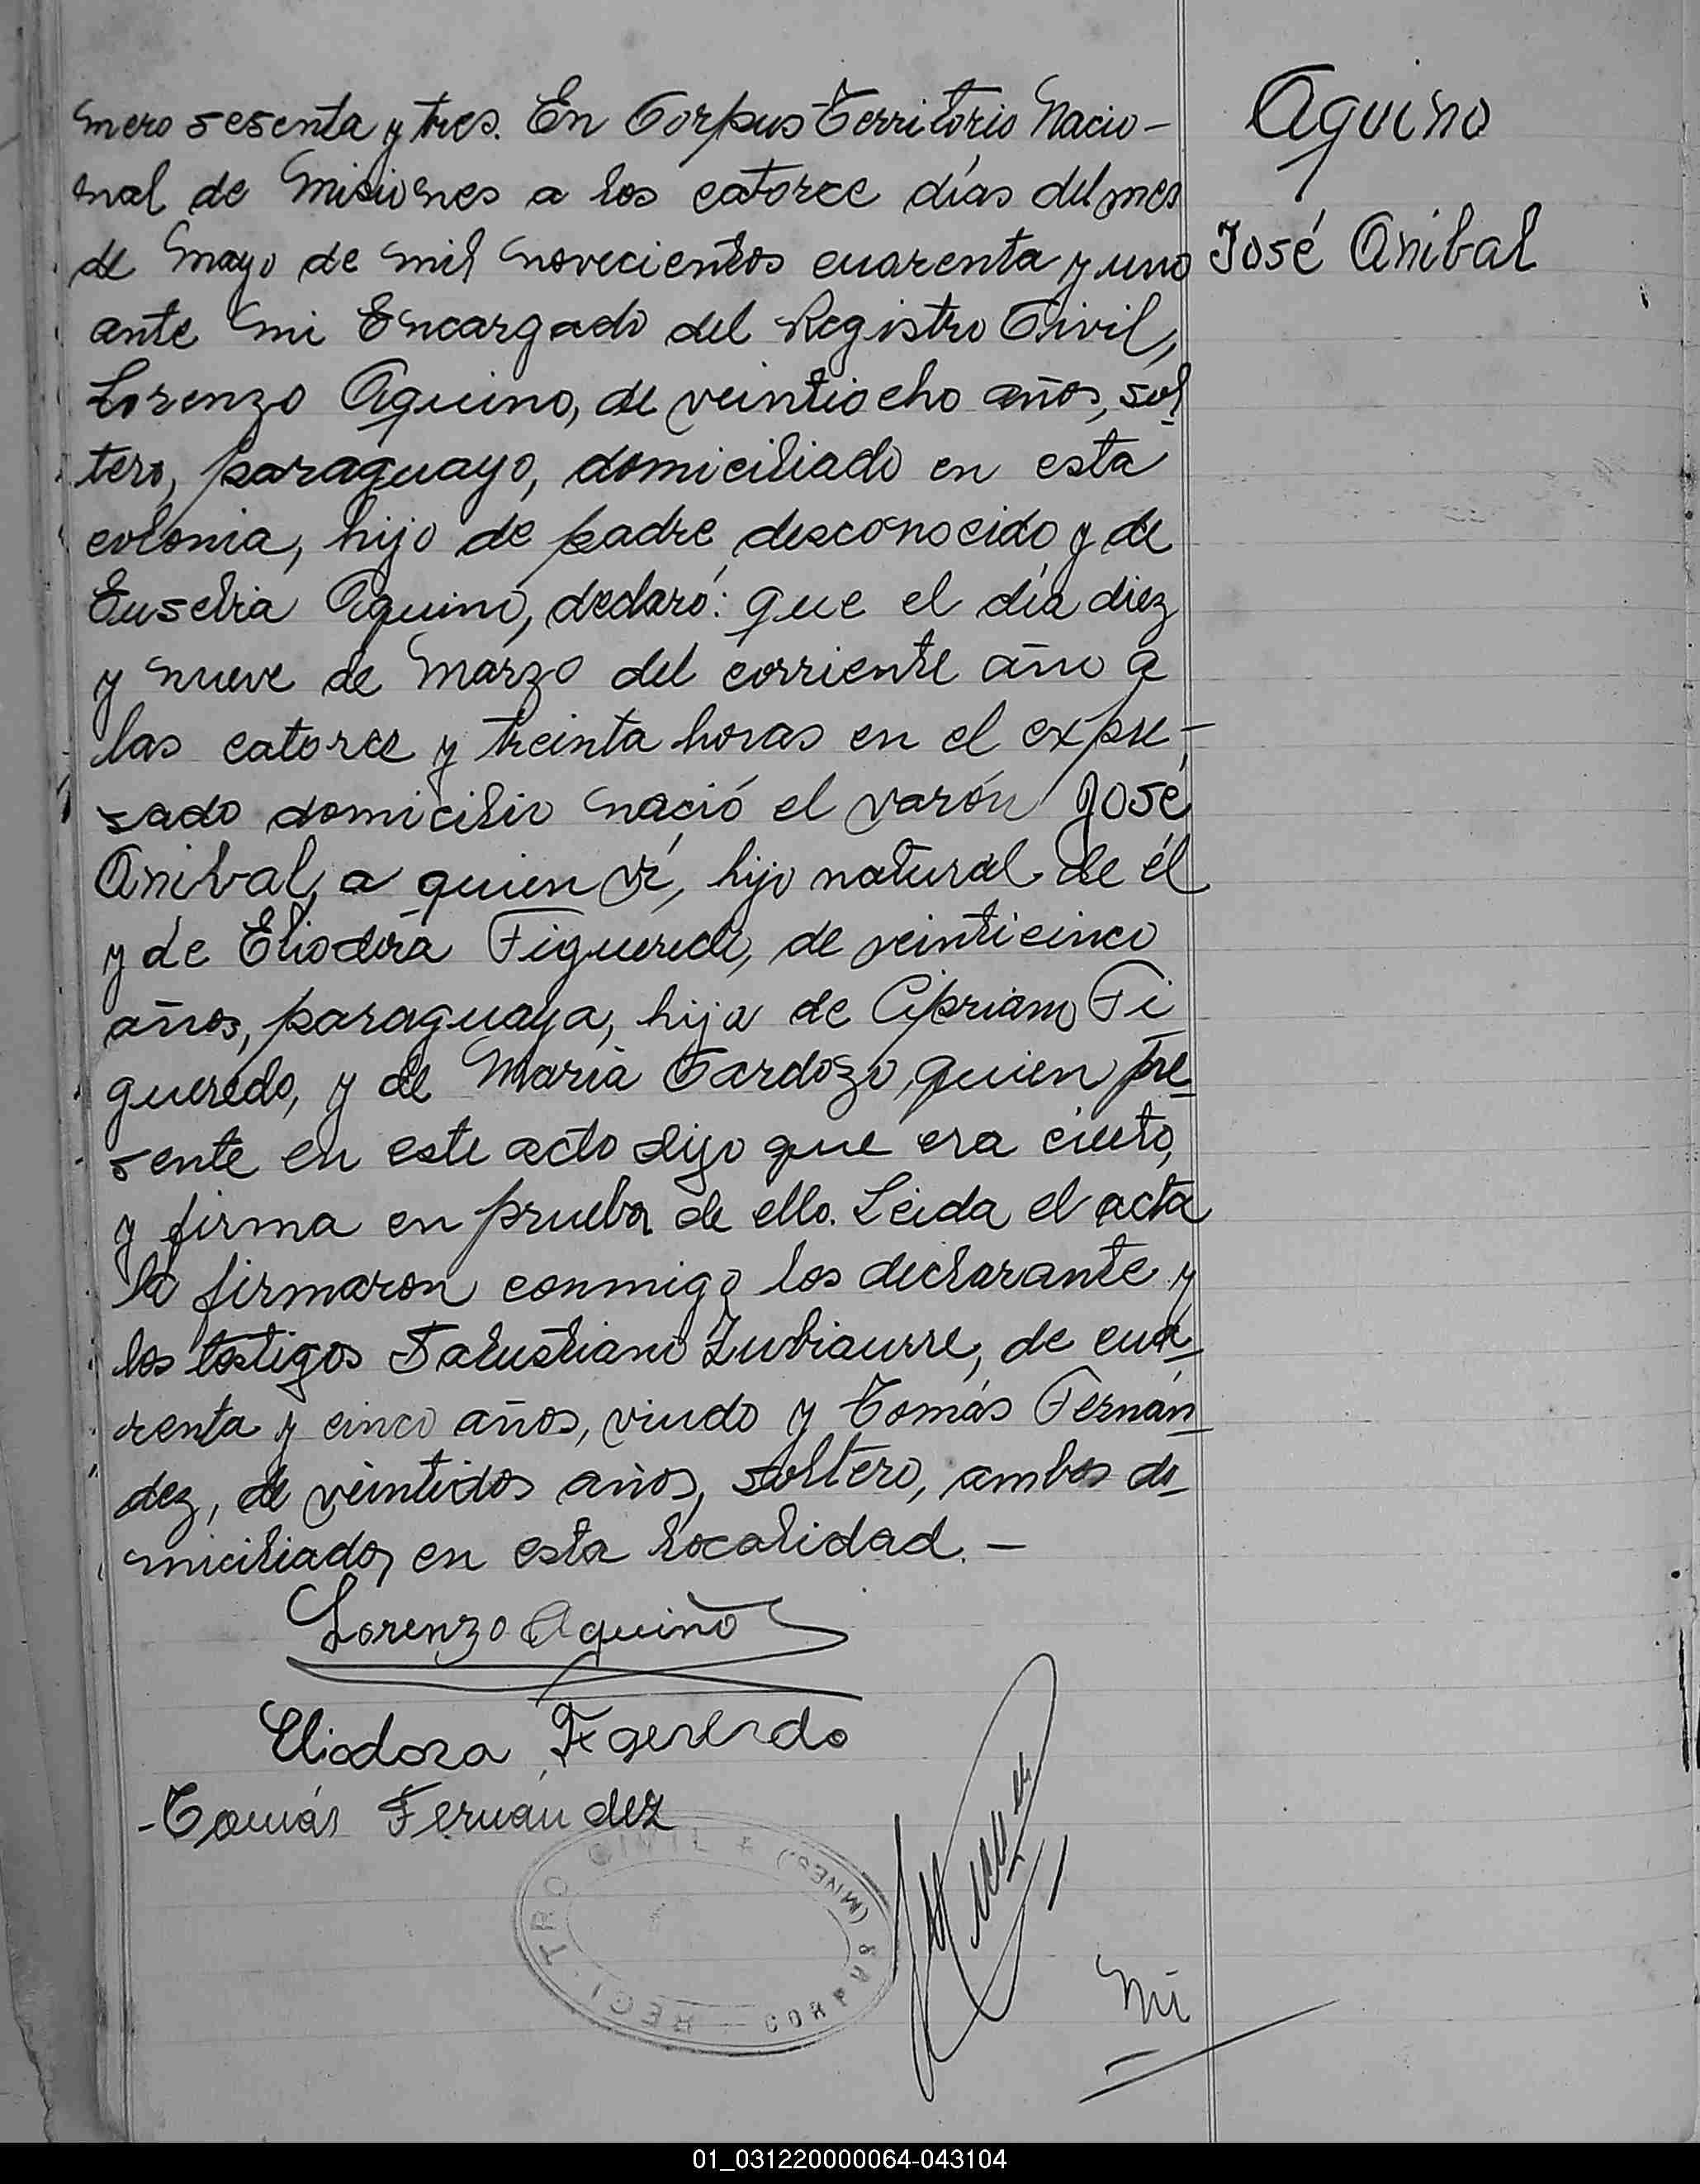 mero sesenta y tres. En Corpus Territorio Nacio-
nal de Misiones a los catorce días del mes
de Mayo de mil novecientos cuarenta y uno
ante mi Encargado del Registro Civil,
Lorenzo Aquino, de veintiocho años, sol
tero, paraguayo, domiciliado en esta
colonia, hijo de padre desconocido y de
Eusebia Aquino, declaró: que el día diez
y nueve de Marzo del corriente año a
las catorce y treinta horas en el expre-
sado domicilio nació el varón José
Anibal, a quien ví, hijo natural de él
y de Eliodora Figueredo, de veinticinco
años, paraguaya, hija de Cipriano Fi
gueredo, y de María Cardozo, quien pre
sente en este acto dijo que era cierto,
y firma en prueba de ello. Leida el acta
la firmaron conmigo los declarante y
los testigos Salustiano Zubiaurre, de cua
renta y cinco años, viudo y Tomás Fernán
dez, de veintidos años, soltero, ambos do
miciliados en esta localidad.-
Aquino
José Anibal
Lorenzo Aquino
Eliodora Figeredo
-Tomás Fernández
REGISTRO CIVIL
CORPUS (MNES.)